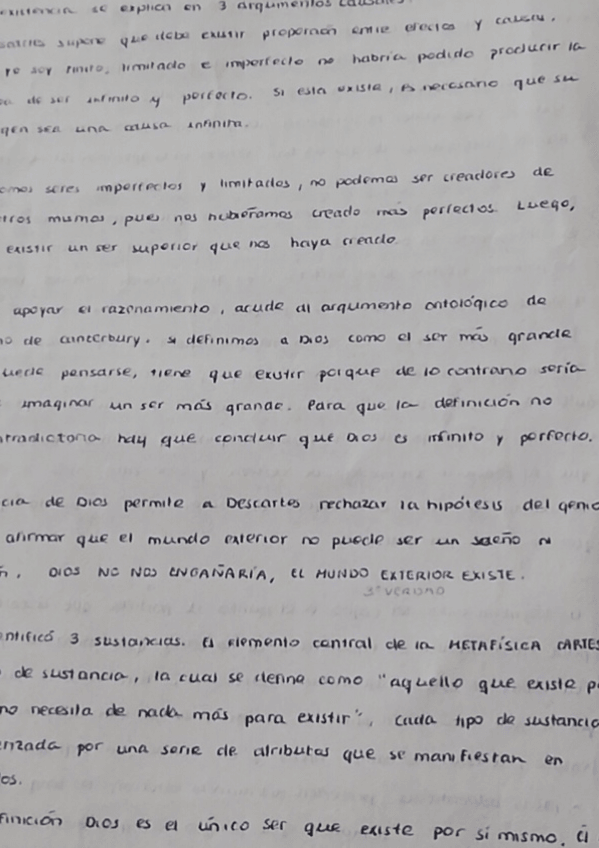 existencia se explica en 3 argumentos causales.
supone que debe existir proporción entre efectos y causas.
yo soy finito, limitado e imperfecto no habría podido producir la
de ser infinito y perfecto. Si esta existe, es necesario que su
gen sea una causa infinita.
omos seres imperfectos y limitados, no podemos ser creadores de
tros mismos, pues nos hubiéramos creado más perfectos. Luego,
existir un ser superior que nos haya creado.
apoyar el razonamiento, acude al argumento ontológico de
o de Canterbury. Si definimos a Dios como el ser más grande
uede pensarse, tiene que existir porque de lo contrario sería
imaginar un ser más grande. Para que la definición no
ntradictoria hay que concluir que Dios es infinito y perfecto.
cia de Dios permite a Descartes rechazar la hipótesis del genio
afirmar que el mundo exterior no puede ser un sueño ni
n. DIOS NO NOS ENGAÑARÍA, EL MUNDO EXTERIOR EXISTE.
3ª VERDAD
entificó 3 sustancias. El elemento central de la METAFÍSICA CARTES
de sustancia, la cual se define como "aquello que existe p
no necesita de nada más para existir", cada tipo de sustancia
erizada por una serie de atributos que se manifiestan en
dos.
finición Dios es el único ser que existe por si mismo. El